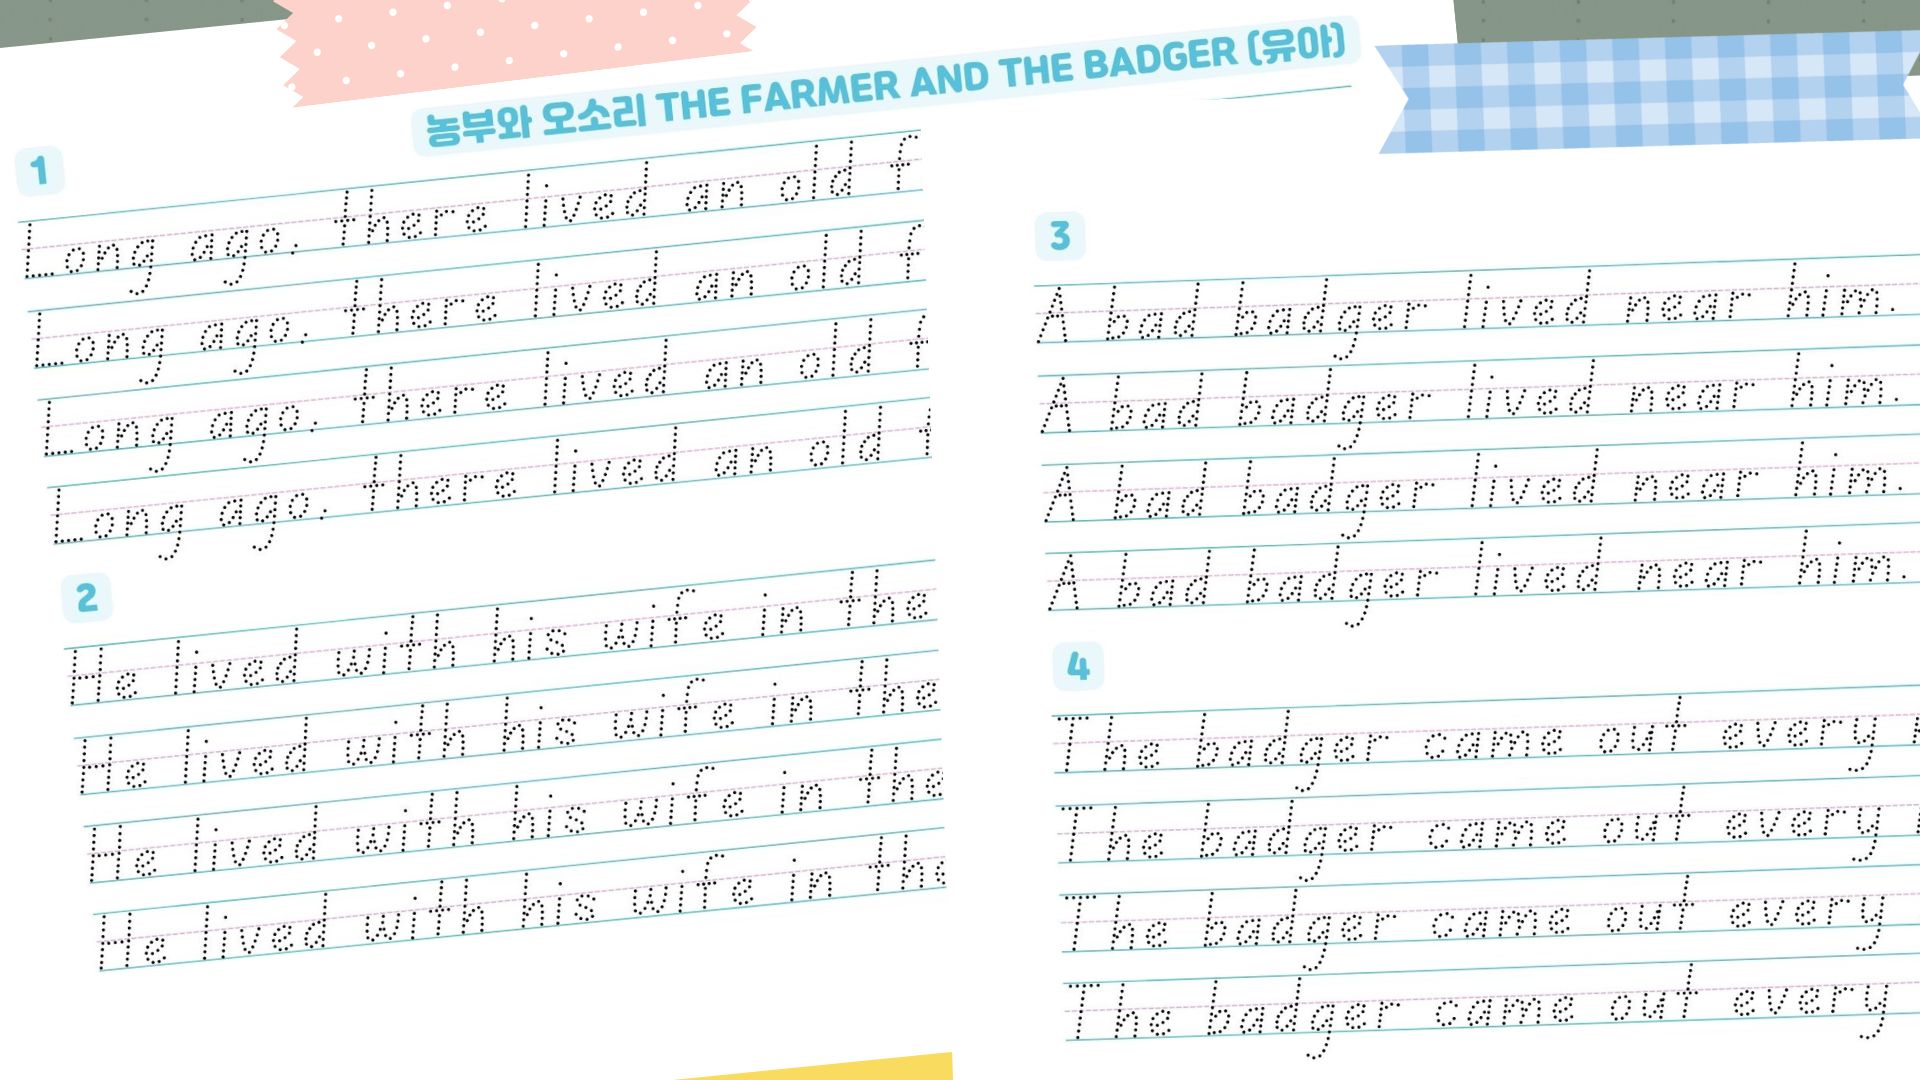 농부와 오소리 THE FARMER AND THE BADGER (유아)
1
Long ago. there lived an old f
Long ago. there lived an old f
Long ago. there lived an old f
Long ago. there lived an old
2
He lived with his wife in the
He lived with his wife in the
He lived with his wife in the
He lived with his wife in the
3
A bad badger lived near him.
A bad badger lived near him.
A bad badger lived near him.
A bad badger lived near him.
4
The badger came out every
The badger came out every
The badger came out every
The badger came out every